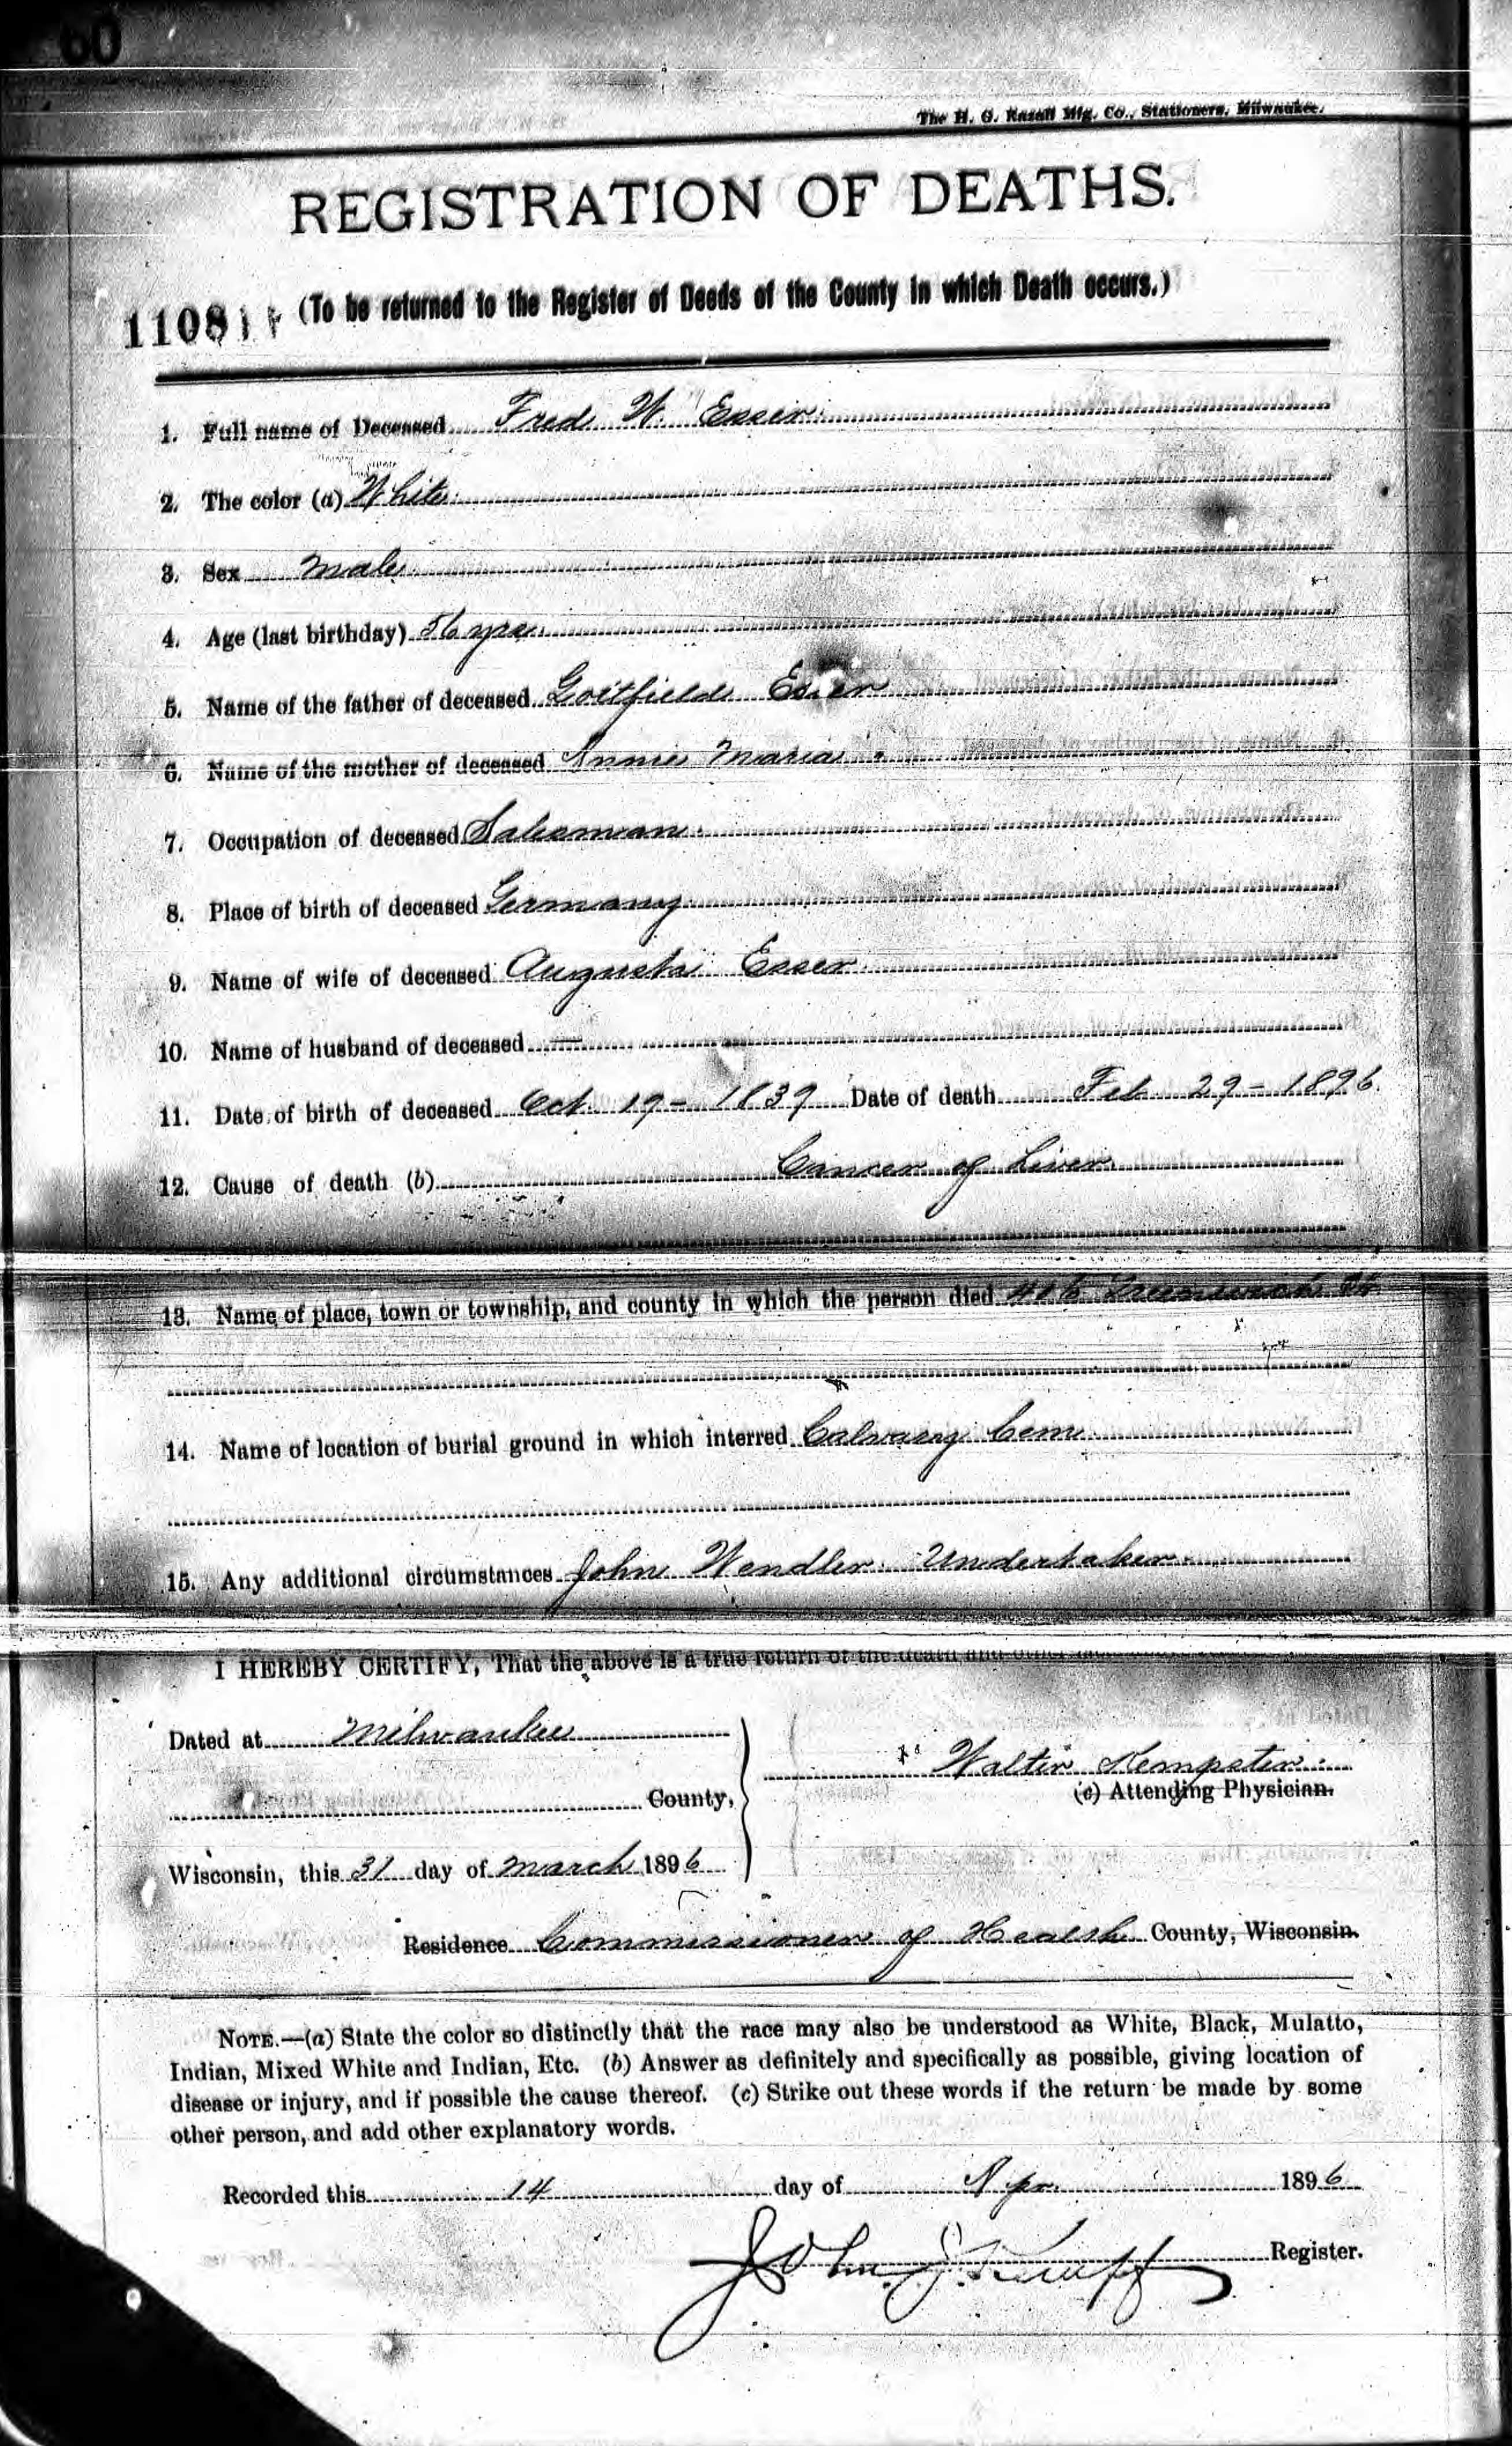 60
The H. G. Razall Mfg. Co., Stationers, Milwaukee.
REGISTRATION OF DEATHS.
1108 (To be returned to the Register of Deeds of the County in which Death occurs.)
1. Full name of Deceased Fred W. Esser
2. The color (a) White
3. Sex male
4. Age (last birthday) 56 yrs.
5. Name of the father of deceased Gottfield Esser
6. Name of the mother of deceased Annie Maria
7. Occupation of deceased Salesman
8. Place of birth of deceased Germany
9. Name of wife of deceased Augusta Esser
10. Name of husband of deceased —
11. Date of birth of deceased Oct. 19 - 1839 Date of death Feb 29 - 1896.
12. Cause of death (b) Cancer of Liver
13. Name of place, town or township, and county in which the person died St
14. Name of location of burial ground in which interred Calvary Cem
15. Any additional circumstances John Wendler Undertaker
I HEREBY CERTIFY, That the above is a true return of the death and other
Dated at Milwaukee
Walter Kempster
(c) Attending Physician.
County,
Wisconsin, this 31 day of March 1896
Residence Commissioner of Health County, Wisconsin.
NOTE.—(a) State the color so distinctly that the race may also be understood as White, Black, Mulatto,
Indian, Mixed White and Indian, Etc. (b) Answer as definitely and specifically as possible, giving location of
disease or injury, and if possible the cause thereof. (c) Strike out these words if the return be made by some
other person, and add other explanatory words.
Recorded this 14 day of Apr. 1896
John J. Kempf Register.